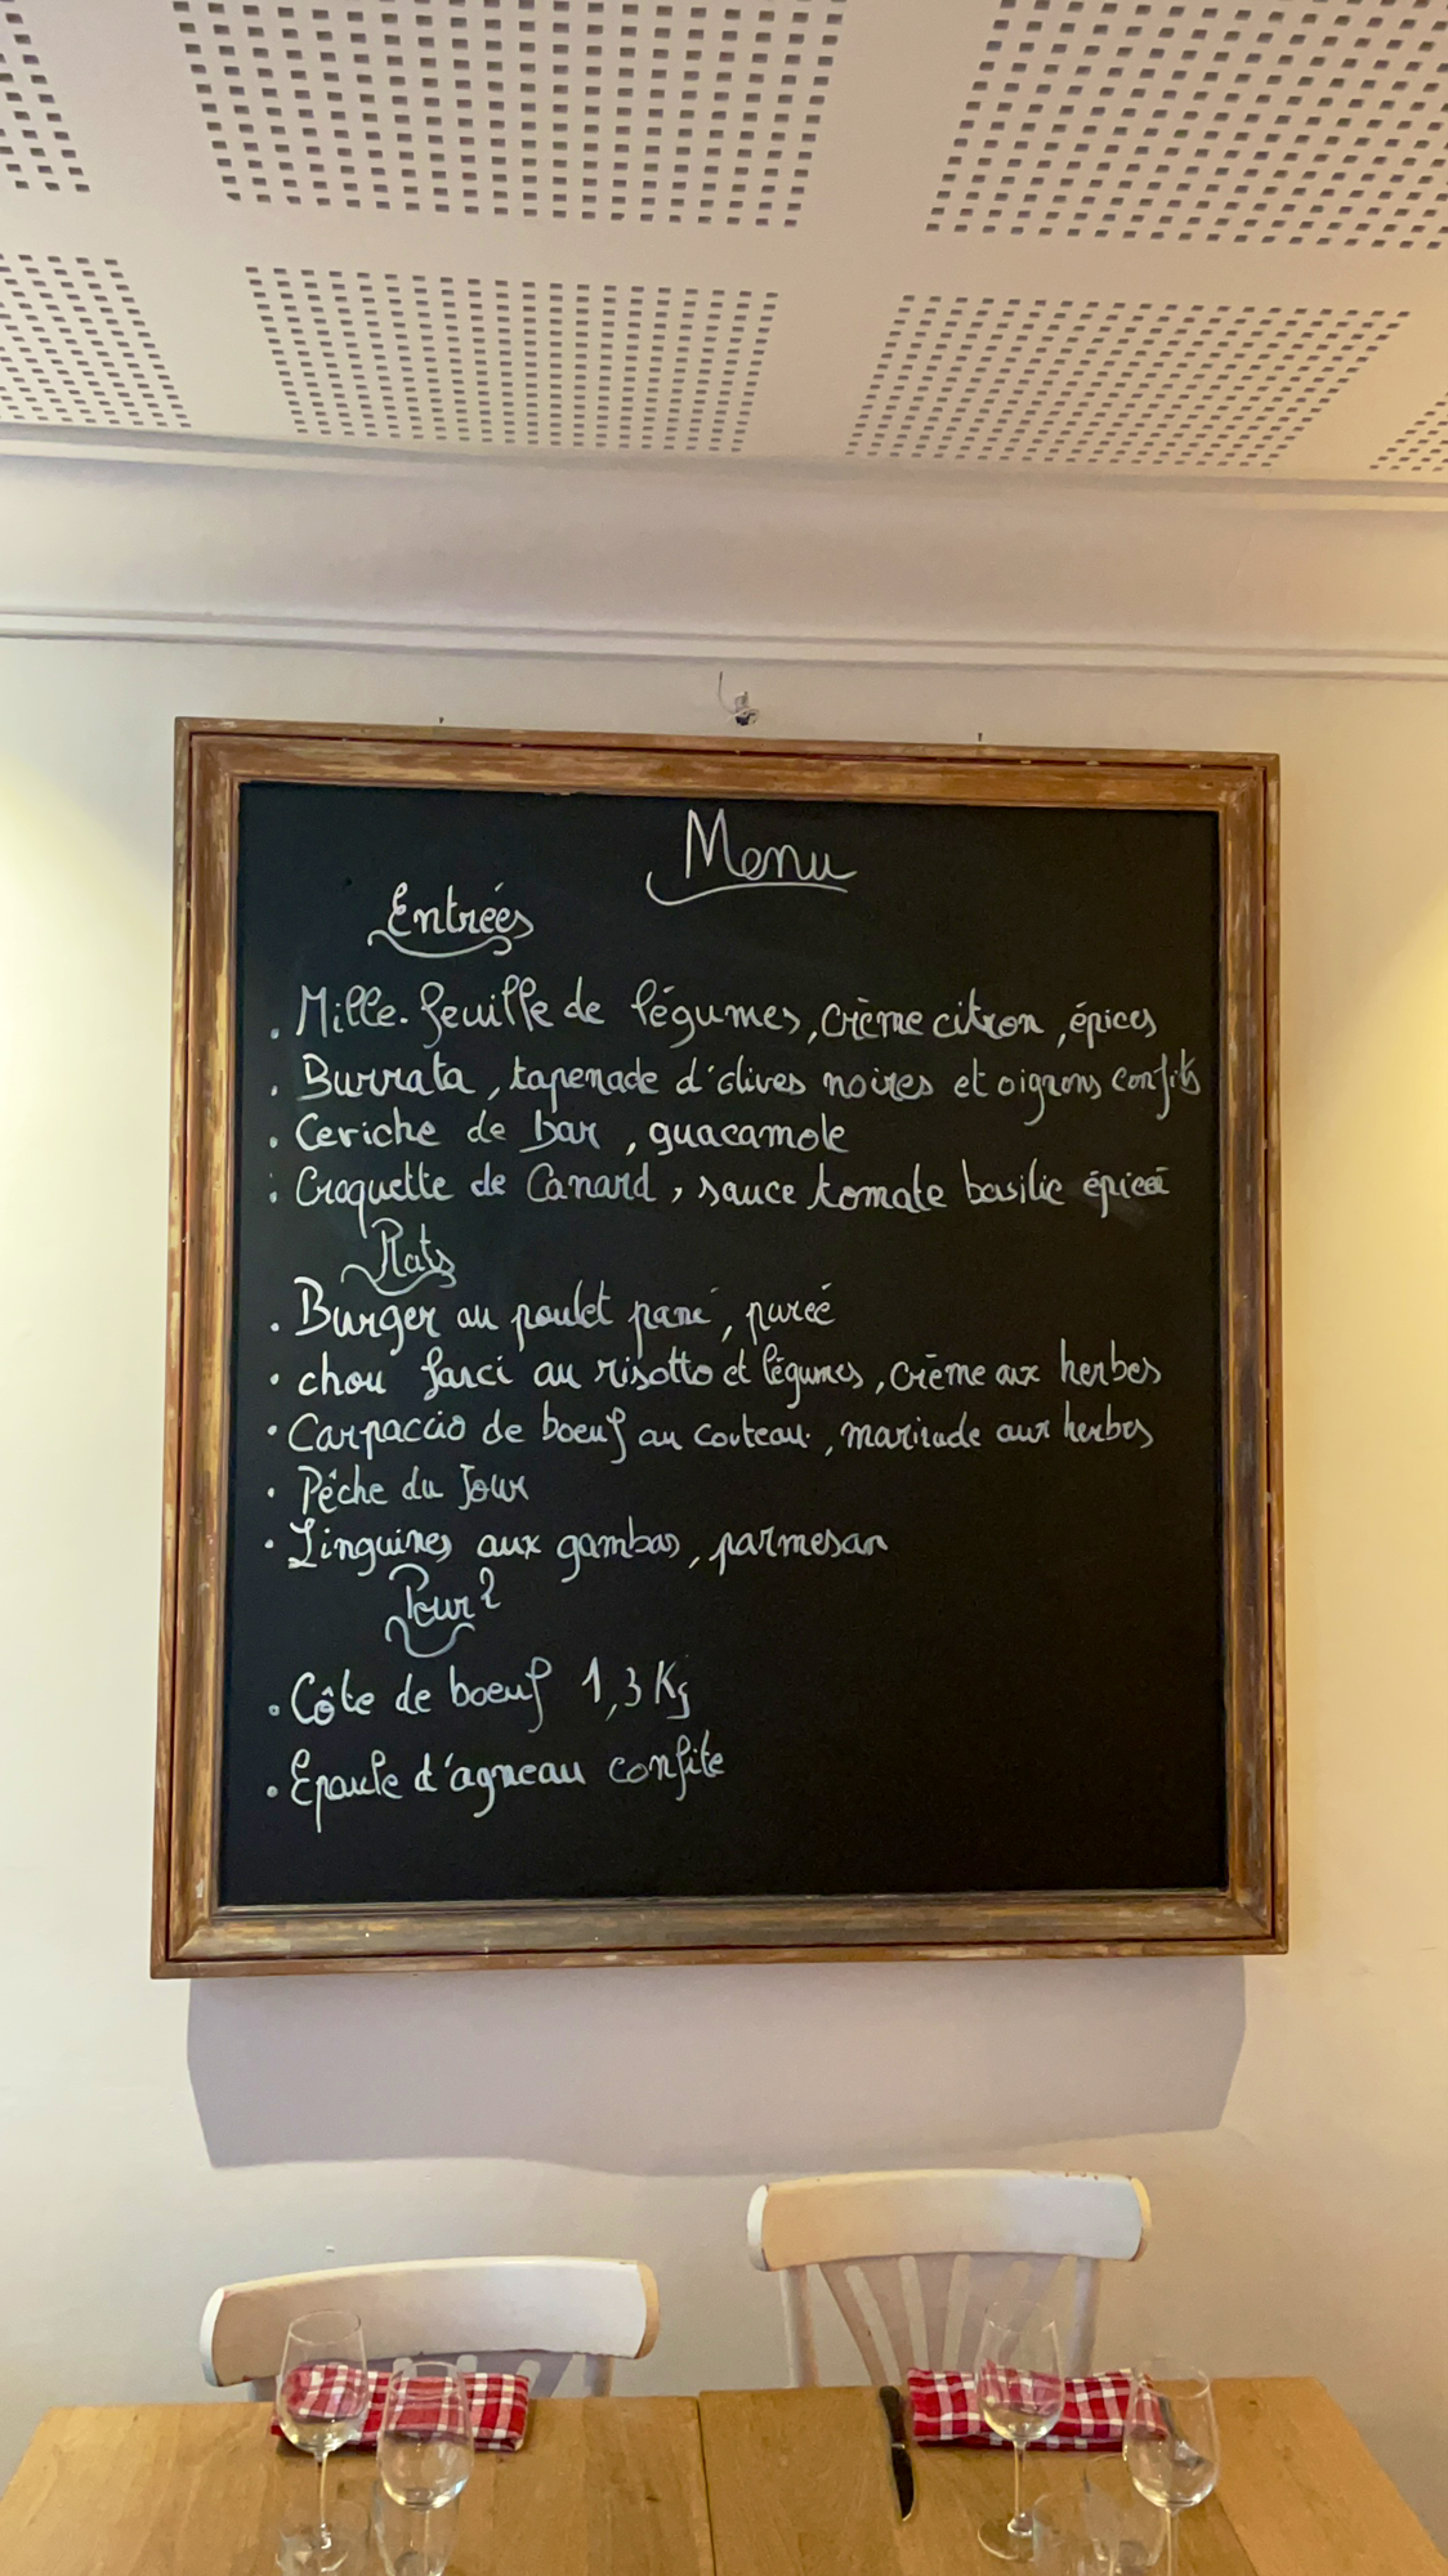 Menu
Entrées
. Mille-feuille de légumes, crème citron, épices
. Burrata, tapenade d'olives noires et oignons confits
. Ceviche de bar, guacamole
. Croquette de Canard, sauce tomate basilic épicée
Plats
. Burger au poulet pané, purée
. chou farci au risotto et légumes, crème aux herbes
. Carpaccio de boeuf au couteau, marinade aux herbes
. Pêche du Jour
. Linguines aux gambas, parmesan
Pour 2
. Côte de boeuf 1,3 Kg
. Epaule d'agneau confite